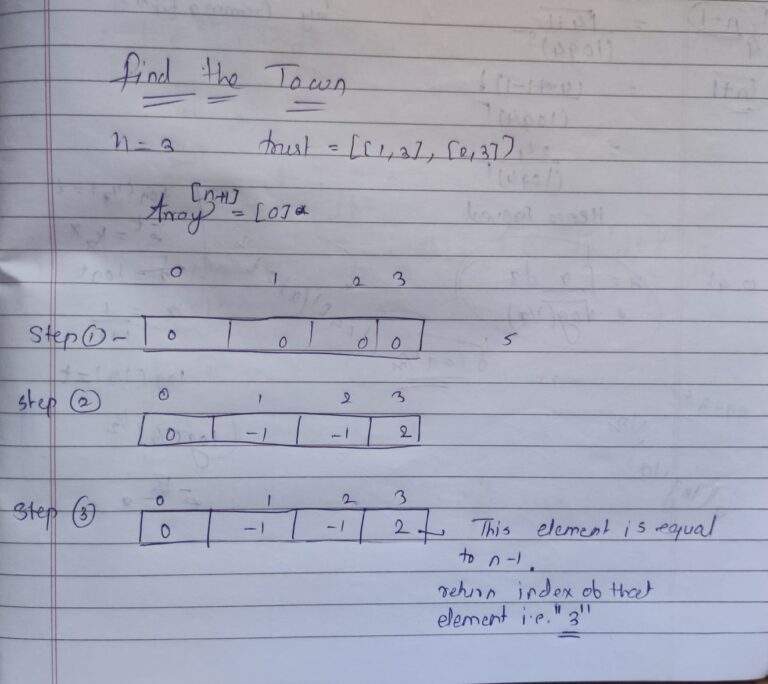 find the Town
n = 3 trust = [[1,3], [2,3]]
[n+1]
Array = [0]
0 1 2 3
Step ① - 0 0 0 0 5
step ② 0 1 2 3
0 -1 -1 2
Step ③ 0 1 2 3
0 -1 -1 2 → This element is equal
to n-1.
return index of that
element i.e. "3"